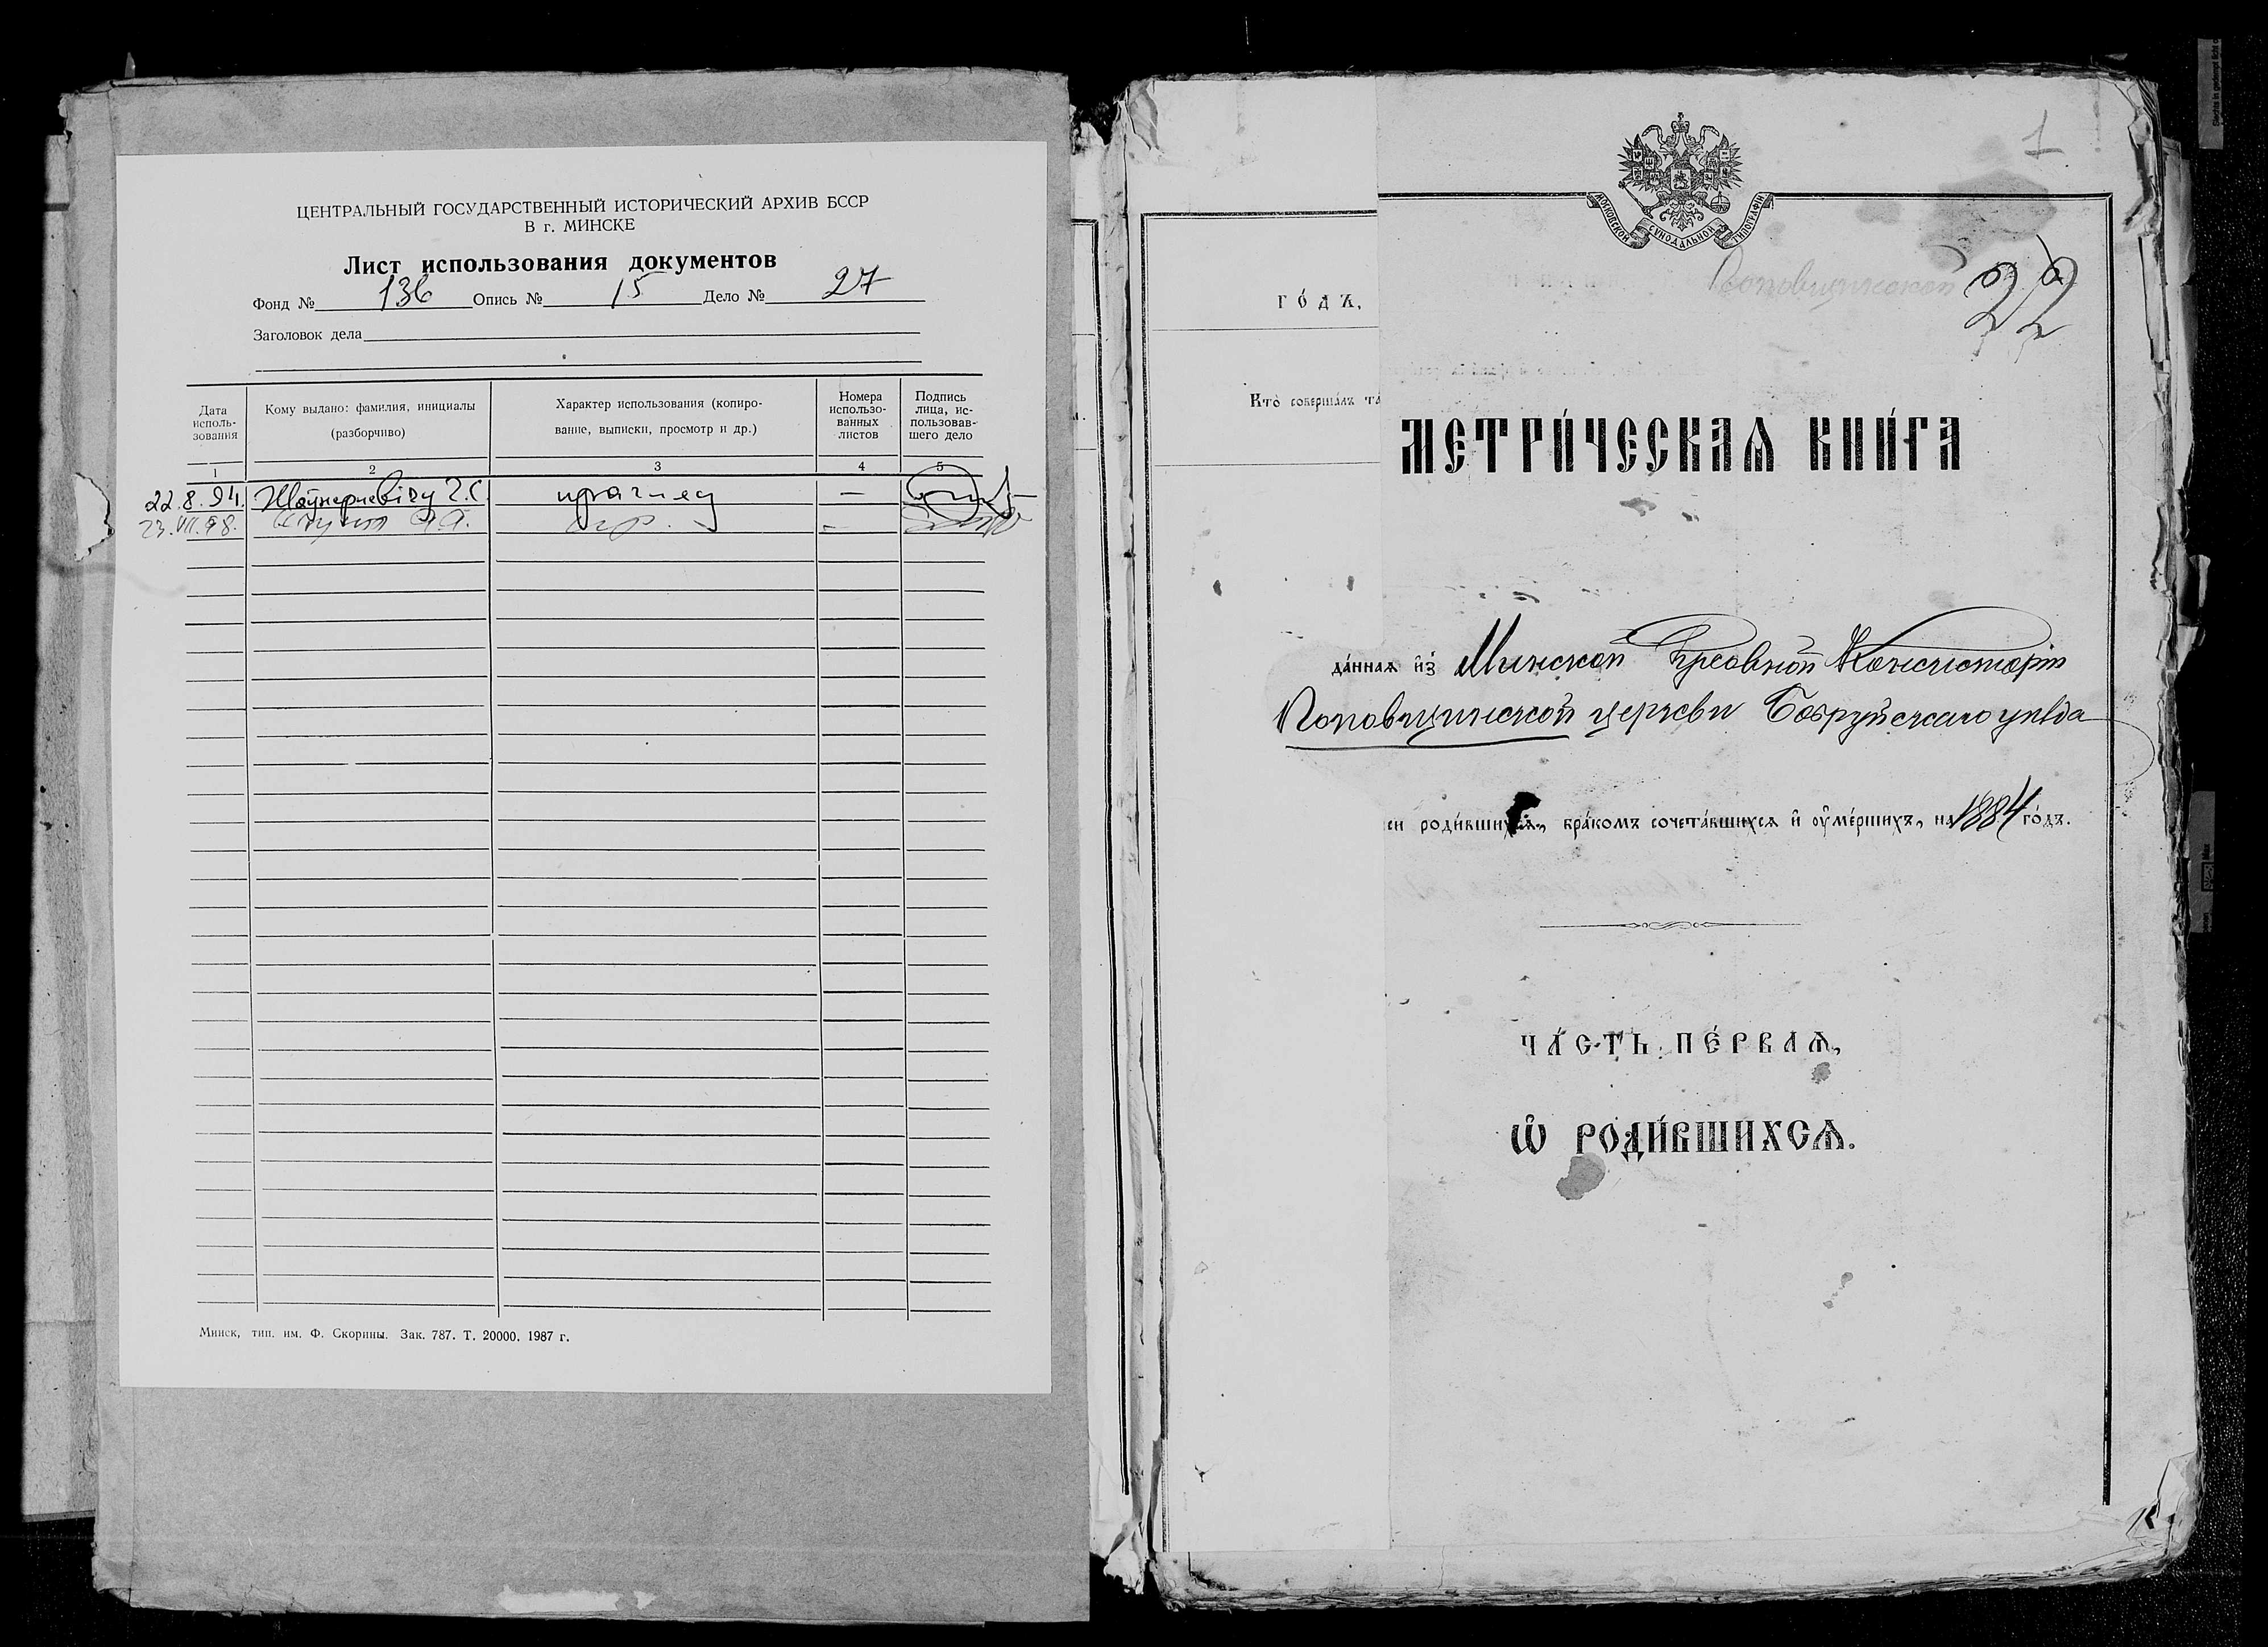 ЦЕНТРАЛЬНЫЙ ГОСУДАРСТВЕННЫЙ ИСТОРИЧЕСКИЙ АРХИВ БССР
В г. МИНСКЕ
Лист использования документов
Фонд № 136 Опись № 15 Дело № 27
Заголовок дела
Дата исполь-
зования
Кому выдано: фамилия, инициалы
(разборчиво)
Характер использования (копиро-
вание, выписки, просмотр и др.)
Номера
использо-
ванных
листов
Подпись
лица, ис-
пользовав-
шего дело
1 2 3 4 5
22.8.94. прагляд —
23.VII.98. —
Минск, тип. им. Ф. Скорины. Зак. 787. Т. 20000. 1987 г.
1
МОСКОВСКОЙ СѴНОДАЛЬНОЙ ТИПОГРАФІИ
Поповщинской 22
го́дъ,
Кто̀ соверша́лъ та
МЕТРИ́ЧЕСКАѦ КНИ́ГА
да́ннаѧ и҆з̾ Минской Духовной Консисторіи
Поповщинской церкви Бобруйскаго уѣзда
си роди́вшихсѧ, бра́комъ сочета́вшихсѧ и҆ оу҆ме́ршихъ, на 1884 го́дъ.
ЧА́СТЬ ПЕ́РВАѦ,
Ѽ РОДИ́ВШИХСѦ.